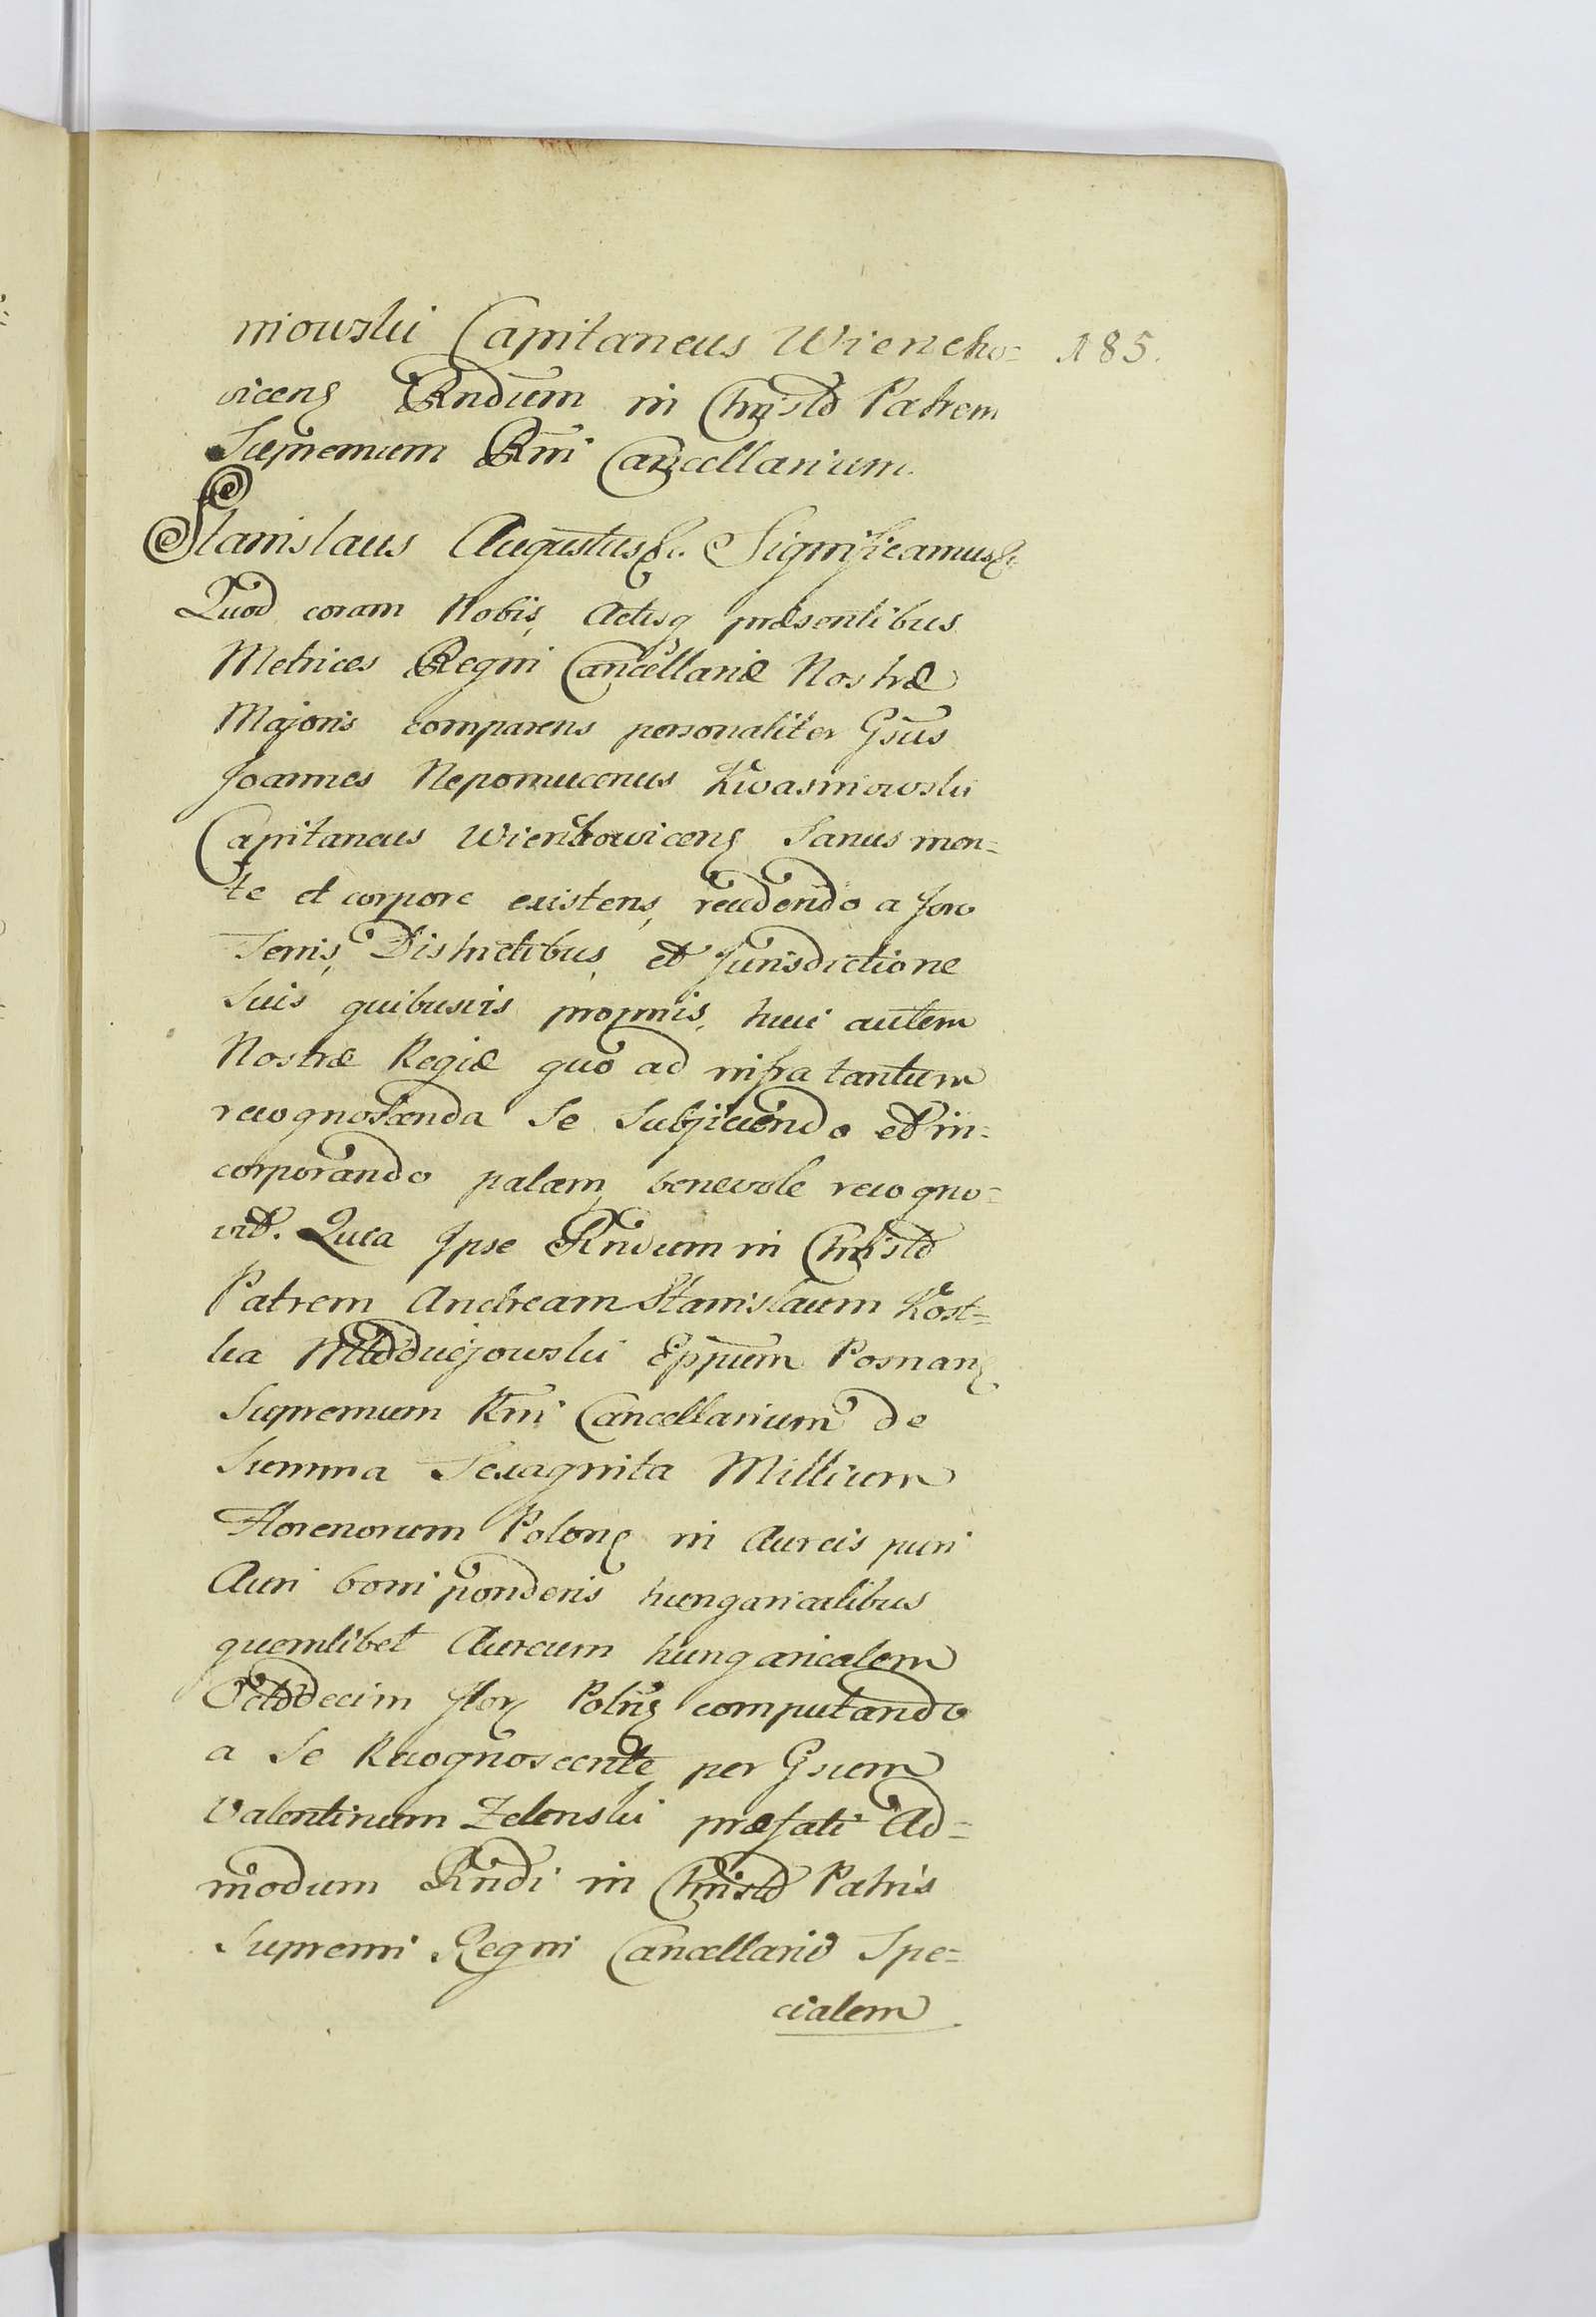 niowski Capitaneus Wiencko= 185.
vicenṣ Rndum in Christo Patrem
Supremum Rni Cancellarium.
Stanislaus Augustus &c. Significamus &c.
Quod coram Nobis, Actisq præsentibus
Metrices Regni Cancellariæ Nostræ
Majoris comparens personaliter Gsus
Joannes Nepomucenus Kwasniowski
Capitaneus Wienckowicenṣ Sanus men=
te et corpore existens, recedendo a foro
Terris, Districtibus, et Jurisdictione
Suis quibusvis propriis, huic autem
Nostræ Regiæ quo ad infra tantum
recognoscenda Se Subjiciendo et in=
corporando palam, benevole recogno=
vit. Quia Ipse Rndum in Christo
Patrem Andream Stanislaum Kost=
ka Młodziejowski Eppum Posnanṣ
Supremum Rni Cancellarium de
Summa Sexaginta Millium
Florenorum Polonṣ in Aureis puri
Auri boni ponderis hungaricalibus
quemlibet Aureum hungaricalem
Octodecim flor Polnṣ computando
a Se Recognoscente, per Gsum
Valentinum Zelenski præfati Ad=
modum Rndi in Christo Patris
Supremi Regni Cancellarii Spe=
cialem